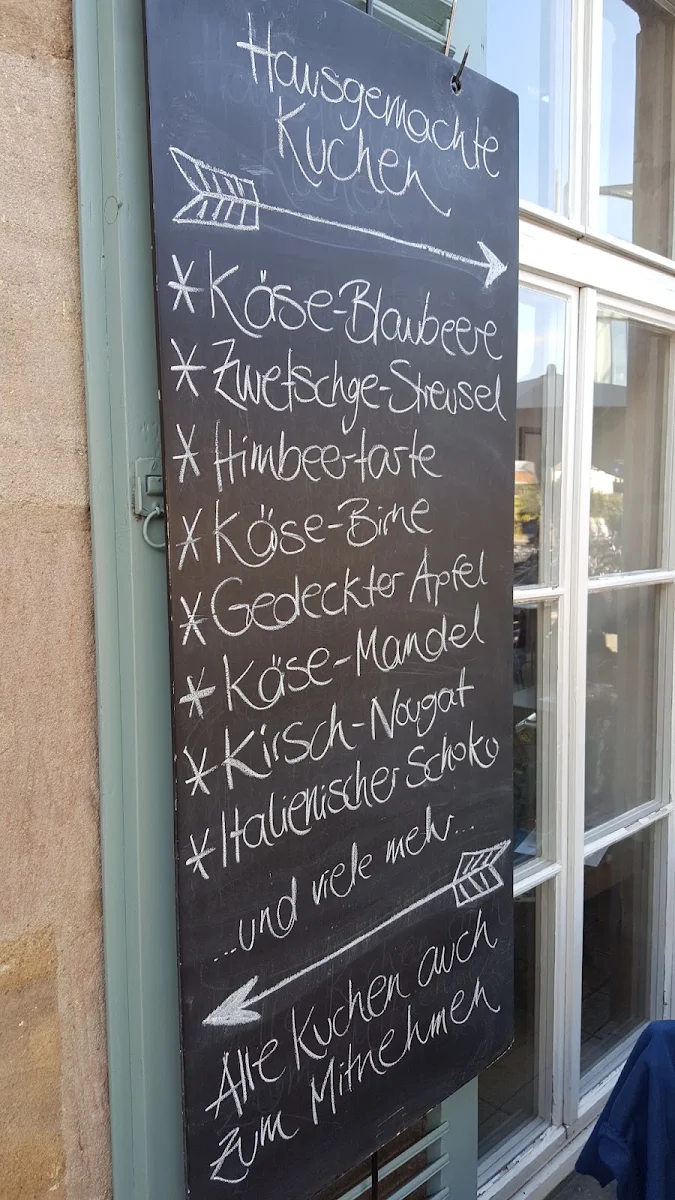 Hausgemachte
Kuchen
* Käse-Blaubeere
* Zwetschge-Streusel
* Himbeer-tarte
* Käse-Birne
* Gedeckter Apfel
* Käse-Mandel
* Kirsch-Nougat
* Italienischer Schoko
...und viele mehr...
Alle Kuchen auch
zum Mitnehmen